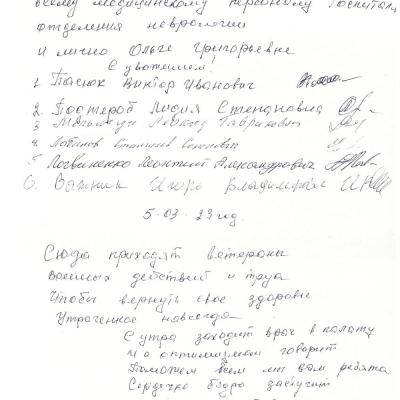 всему медицинскому персоналу Госпиталя
отделения неврологии
и лично Ольге Григорьевне
С уважением!
1. Пасюк Виктор Иванович
2. Поштероб Лидия Степановна
3 Леонид Гаврилович
4.
5. Логвиненко Леонтий Александрович
6. Важник Игорь Владимирович
5.03.23 год.
Сюда приходят ветераны
Военных действий и труда
Чтобы вернуть свое здоровье
Утраченное навсегда
С утра заходит врач в палату
И с оптимизмом говорит
Поможем всем мы вам ребята
Сердечко бодро застучит